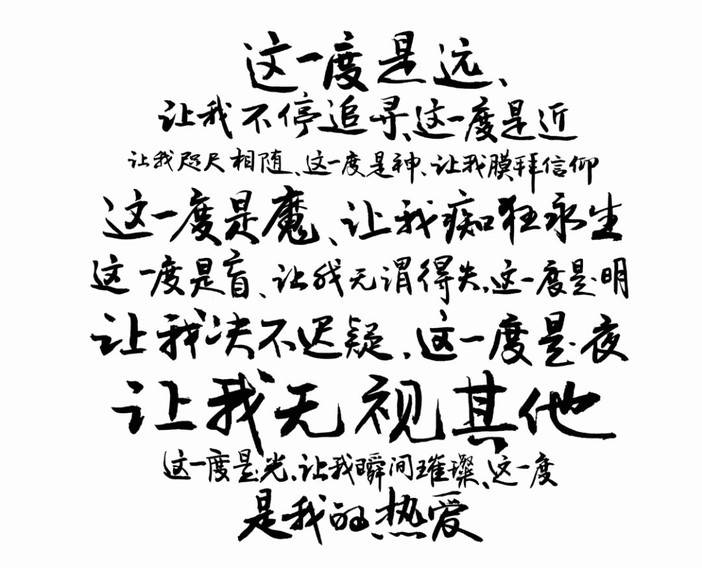 这一度是远、
让我不停追寻、这一度是近
让我咫尺相随、这一度是神、让我膜拜信仰
这一度是魔、让我痴狂永生
这一度是盲、让我无谓得失、这一度是明
让我决不迟疑、这一度是夜
让我无视其他
这一度是光、让我瞬间璀璨、这一度
是我的、热爱